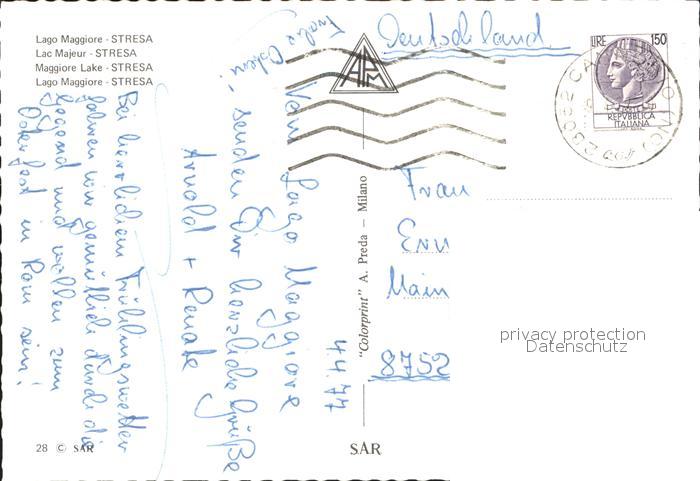 Lago Maggiore - STRESA
Lac Majeur - STRESA
Maggiore Lake - STRESA
Lago Maggiore - STRESA
Deutschland
LIRE 150
REPVBBLICA
ITALIANA
APM
4.4.77
Frohe Ostern!
Vom Lago Maggiore
senden Dir herzliche Grüße
Arnold + Renate
Bei herrlichem Frühlingswetter
fahren wir gemütlich durch die
Gegend und wollen zum
Osterfest in Rom sein!
"Colorprint" A. Preda — Milano
Frau
Main
8752
privacy protection
Datenschutz
28 © SAR
SAR